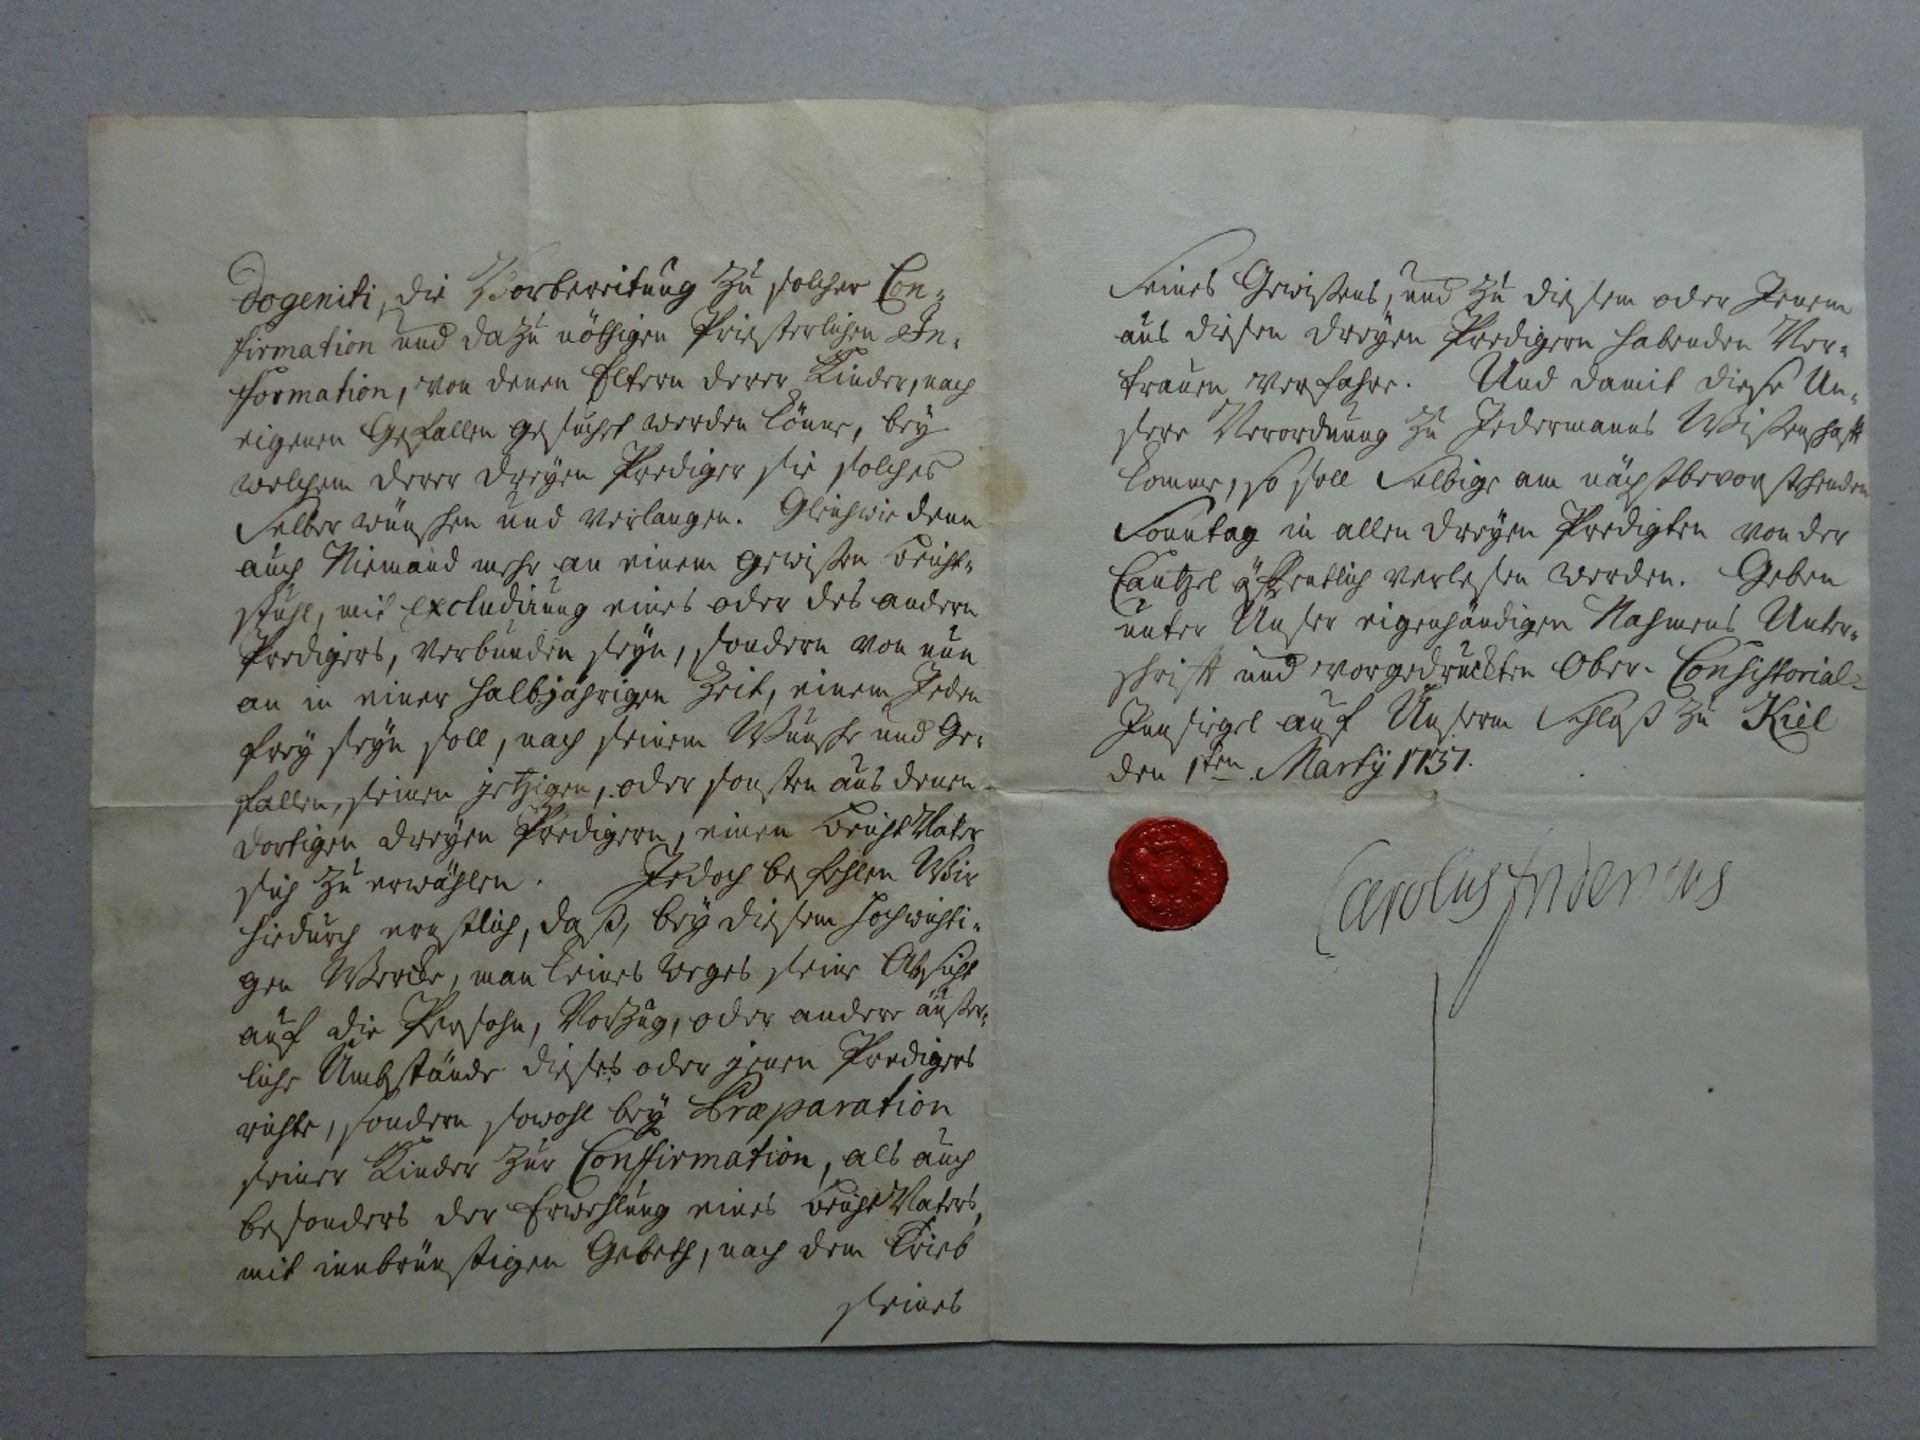 dogeniti, die Vorbereitung zu solcher Con-
firmation und dazu nöthigen Priesterlichen In-
formation, von denen Eltern derer Kinder, nach
eigenen Gefallen gesuchet werden könne, bey
welchem derer dreyen Prediger sie solches
selber wünschen und verlangen. Gleichwie denn
auch Niemand mehr an einem gewißen Beicht-
stuhl, mit excludirung eines oder des andern
Predigers, verbunden seyn, sondern von nun
an in einer halbjährigen Zeit, einem Jeden
frey seyn soll, nach seinem Wunsche und Ge-
fallen, seinen jetzigen, oder sonsten aus denen
dortigen dreyen Predigern, einen Beicht Vater
sich zu erwählen. Jedoch befehlen Wir
hiedurch ernstlich, daß, bey diesem hochwichti-
gen Wercke, man keines weges seine Absicht
auf die Persohn, Vorzug, oder andere äußer-
liche Umbstände dieses oder jenen Predigers
richte, sondern sowohl bey Præparation
seiner Kinder zur Confirmation, als auch
besonders der Erwehlung eines Beicht Vaters,
mit innbrünstigen Gebeth, nach dem Trieb
seines
Seines Gewißens, und zu diesem oder Jenem
aus diesen dreyen Predigern habenden Ver-
trauen verfahre. Und damit diese Un-
sere Verordnung zu Jedermanns Wißenschafft
komme, so soll Selbige am nächstbevorstehenden
Sonntag in allen dreyen Predigten von der
Cantzel öffentlich verlesen werden. Geben
unter Unser eigenhändigen Nahmens Unter-
schrifft und vorgedruckten Ober-Consistorial-
Innsiegel auf Unserm Schloß zu Kiel
den 1ten Martÿ 1737.
Carolus Fridericus